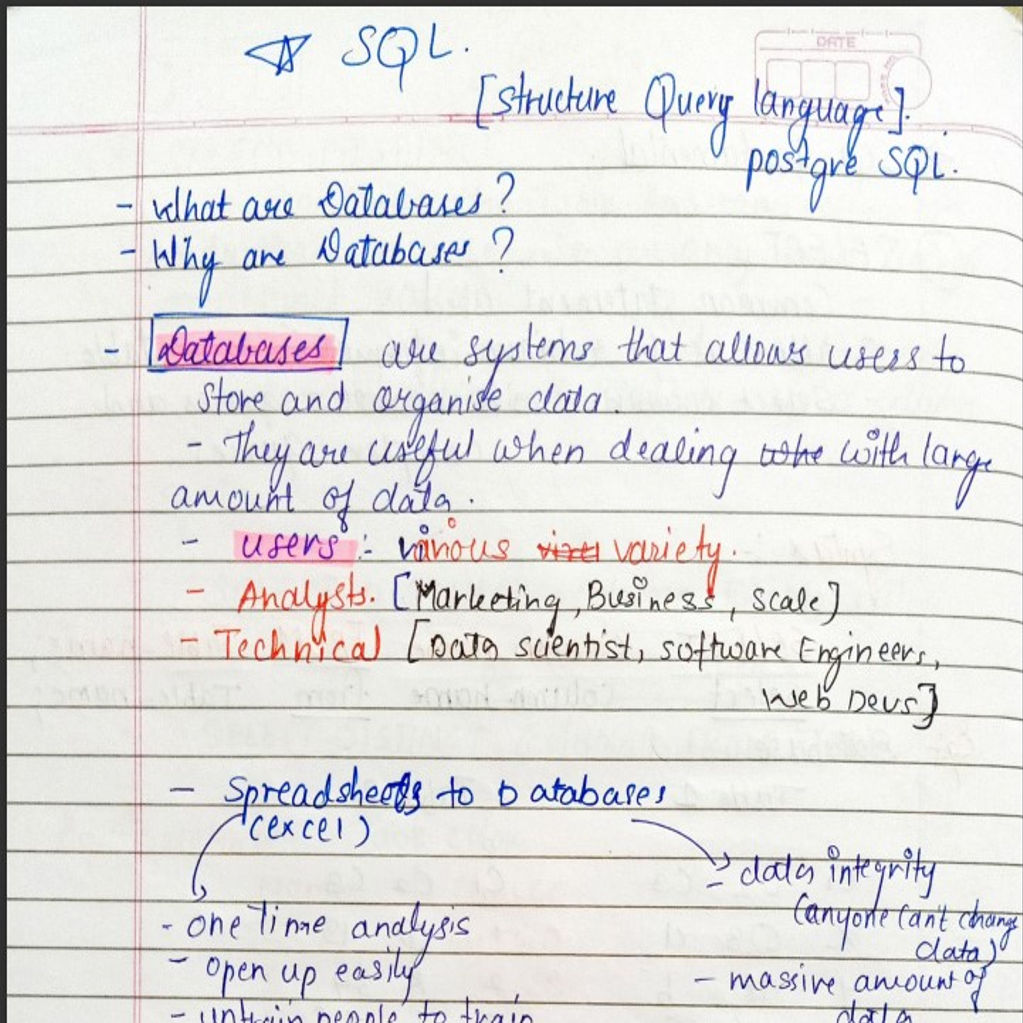 SQL.
DATE
[structure Query language].
postgre SQL.
- What are Databases?
- Why are Databases?
- Databases are systems that allows users to
store and organise data.
- They are useful when dealing with large
amount of data.
- users :- various variety.
- Analysts. [Marketing, Business, scale]
- Technical [Data scientist, software Engineers,
Web Devs]
- Spreadsheets to Databases
(excel)
- one Time analysis
- open up easily
- untrain people to train
- data integrity
(anyone can't change
data)
- massive amount of
data